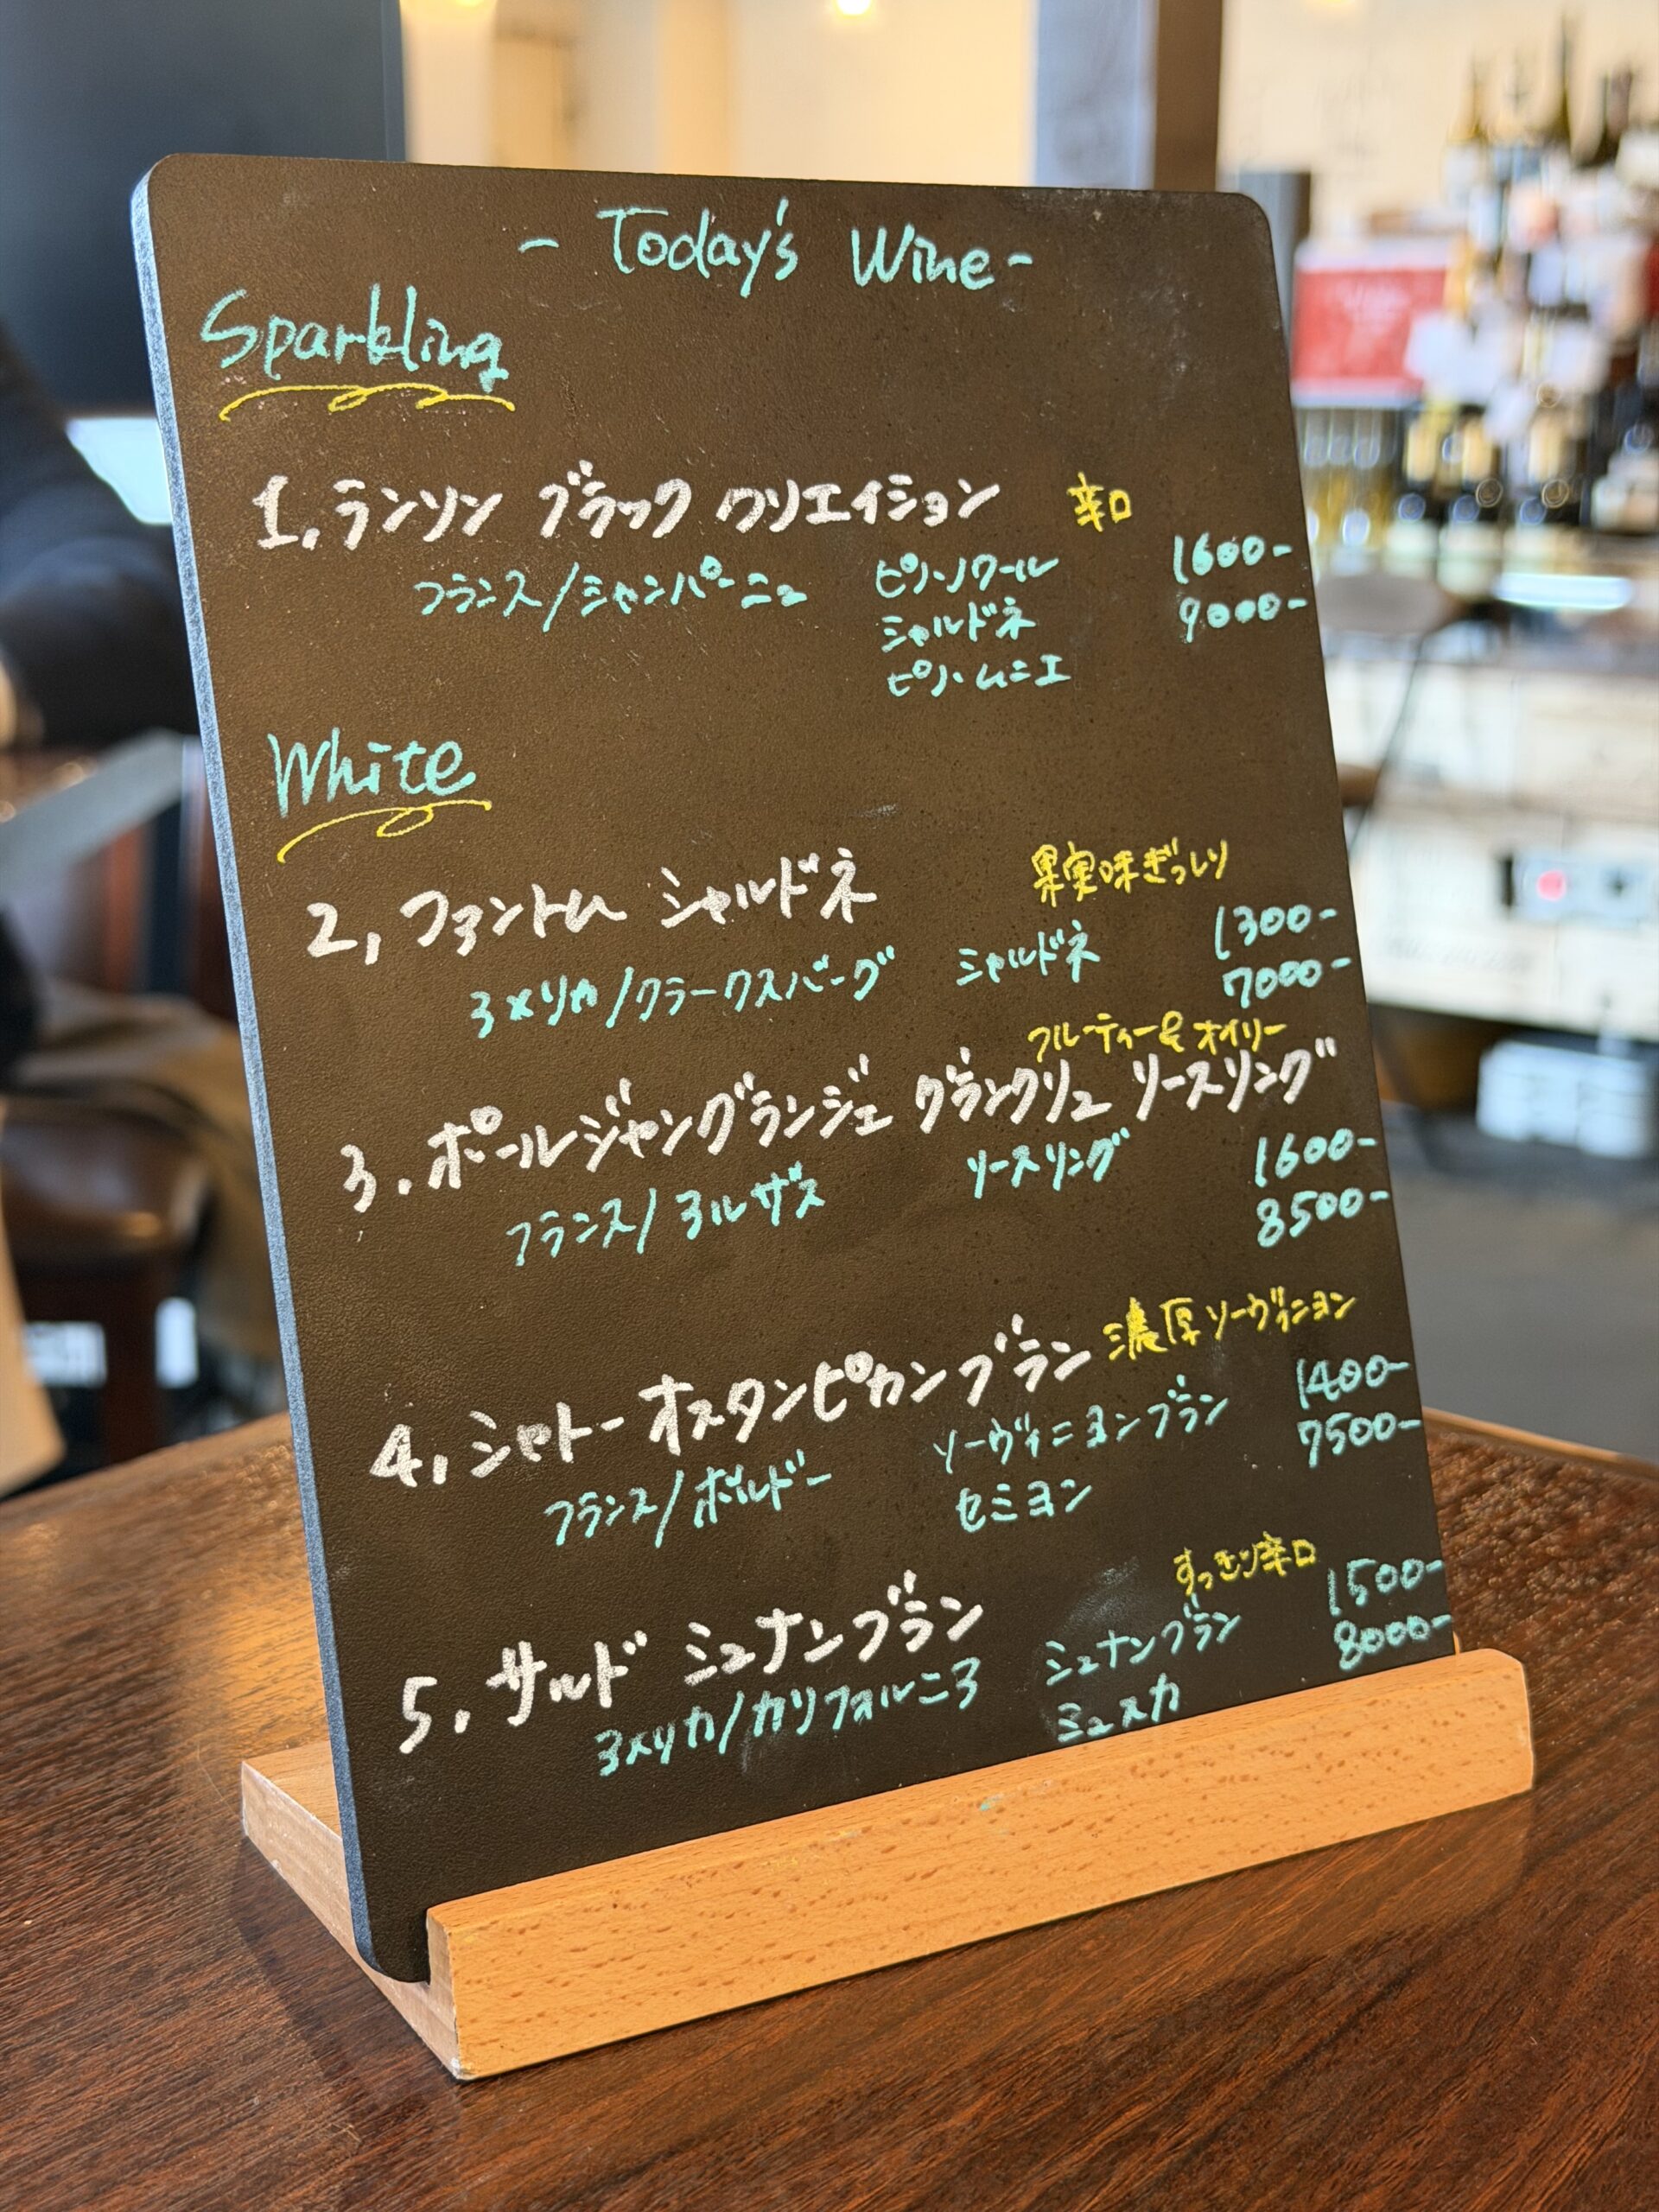 - Today's Wine -
Sparkling
1. ランソン ブラック クリエイション 辛口
フランス/シャンパーニュ ピノ・ノワール 1600-
シャルドネ 9000-
ピノ・ムニエ
White
果実味ぎっしり
2, ファントム シャルドネ
アメリカ/クラークスバーグ シャルドネ 1300-
7000-
フルーティー& オイリー
3. ポールジャングランジェ グランクリュ リースリング
フランス/アルザス リースリング 1600-
8500-
濃厚ソーヴィニヨン
4, シャトー オスタンピカン ブラン
フランス/ボルドー ソーヴィニヨンブラン 1400-
セミヨン 7500-
すっきり辛口
5. サルド シュナンブラン
アメリカ/カリフォルニア シュナンブラン 1500-
ミュスカ 8000-